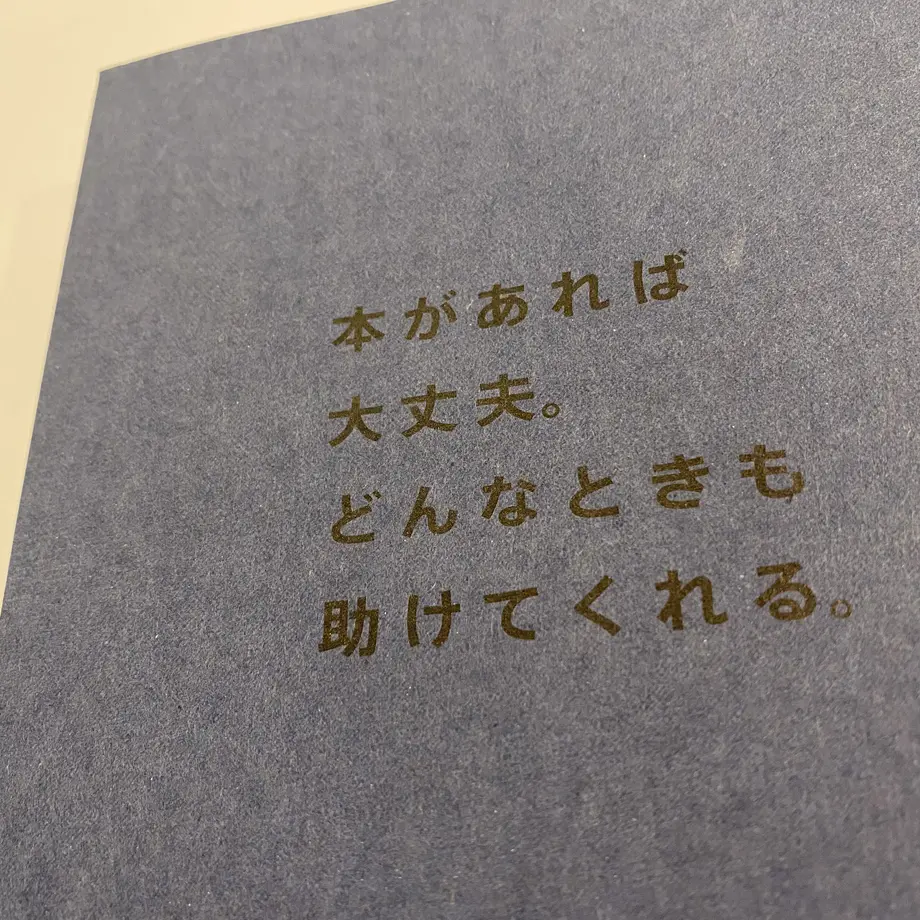 本があれば
大丈夫。
どんなときも
助けてくれる。